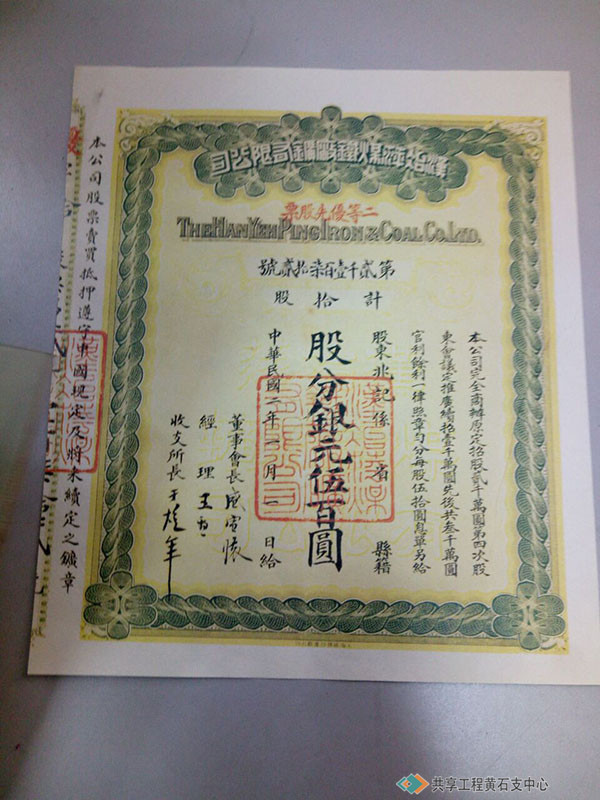 漢冶萍煤鐵鑛廠有限公司
二等優先股票
THE HAN YEH PING IRON & COAL CO. LTD.
第貳千壹百柒拾貳號
計拾股
本公司完全商辦原定招股貳千萬圓第四次股
東會議定推廣續招壹千萬圓先後共叁千萬圓
官利餘利一律照章勻分每股伍拾圓息單另給
股東兆記係 省 縣籍
股分銀元伍百圓
中華民國二年一月一日給
董事會長盛宣懷
經理王
收支所長于焌年
本公司股票賣買抵押遵守中國現定及將來續定之鑛章
共享工程黄石支中心